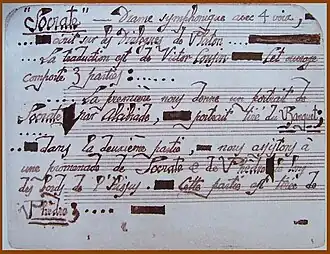 "Socrate" — Drame symphonique avec 4 voix,
écrit sur les Dialogues de Platon
La traduction est de Victor Cousin Cet ouvrage
comporte 3 parties:
La première nous donne un portrait de
Socrate par Alcibiade, portrait tiré du Banquet;
dans la deuxième partie, nous assistons à
une promenade de Socrate & de Phèdre le long
des bords de l'Ilissus. Cette partie est tirée de
Phèdre;